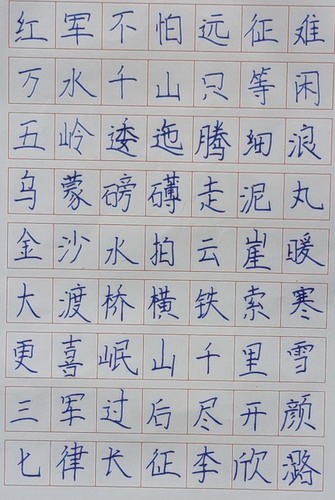 红军不怕远征难
万水千山只等闲
五岭逶迤腾细浪
乌蒙磅礴走泥丸
金沙水拍云崖暖
大渡桥横铁索寒
更喜岷山千里雪
三军过后尽开颜
七律长征李欣潞